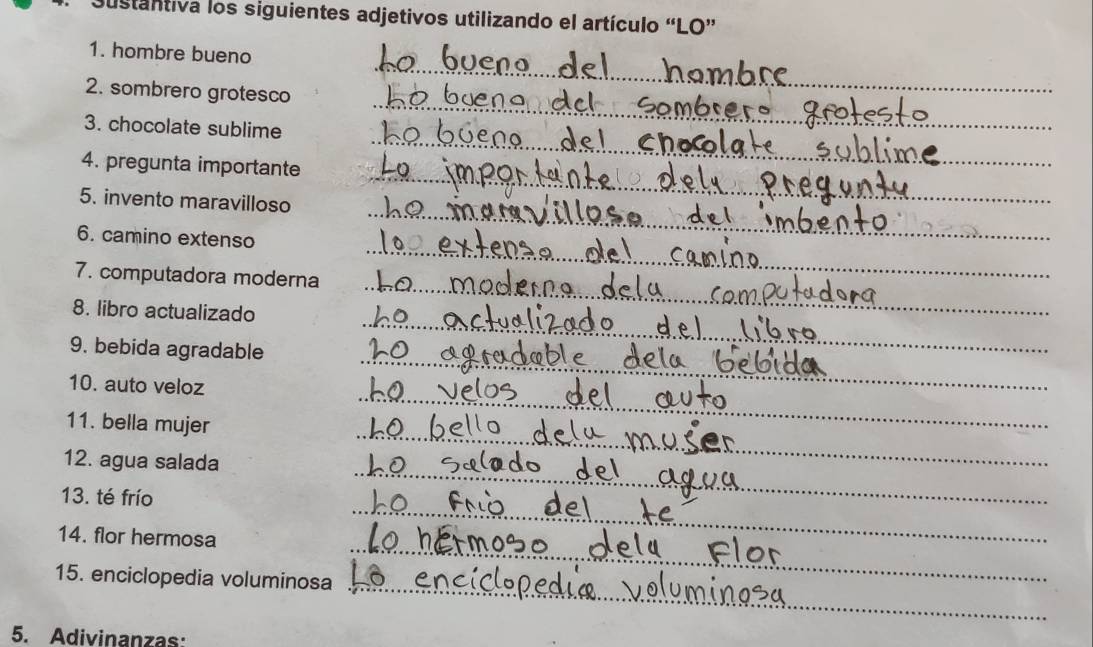 4. Sustantiva los siguientes adjetivos utilizando el artículo “LO”
1. hombre bueno Lo bueno del hombre
2. sombrero grotesco Lo bueno del sombrero grotesto
3. chocolate sublime Lo bueno del chocolate sublime
4. pregunta importante Lo importante dela pregunta
5. invento maravilloso Lo maravilloso del imbento
6. camino extenso lo extenso del camino
7. computadora moderna Lo moderno dela computadora
8. libro actualizado Lo actualizado del libro
9. bebida agradable Lo agradable dela bebida
10. auto veloz Lo velos del auto
11. bella mujer Lo bello dela muser
12. agua salada Lo salado del agua
13. té frío Lo Frio del te
14. flor hermosa Lo hermoso dela Flor
15. enciclopedia voluminosa Lo enciclopedia voluminosa
5. Adivinanzas: